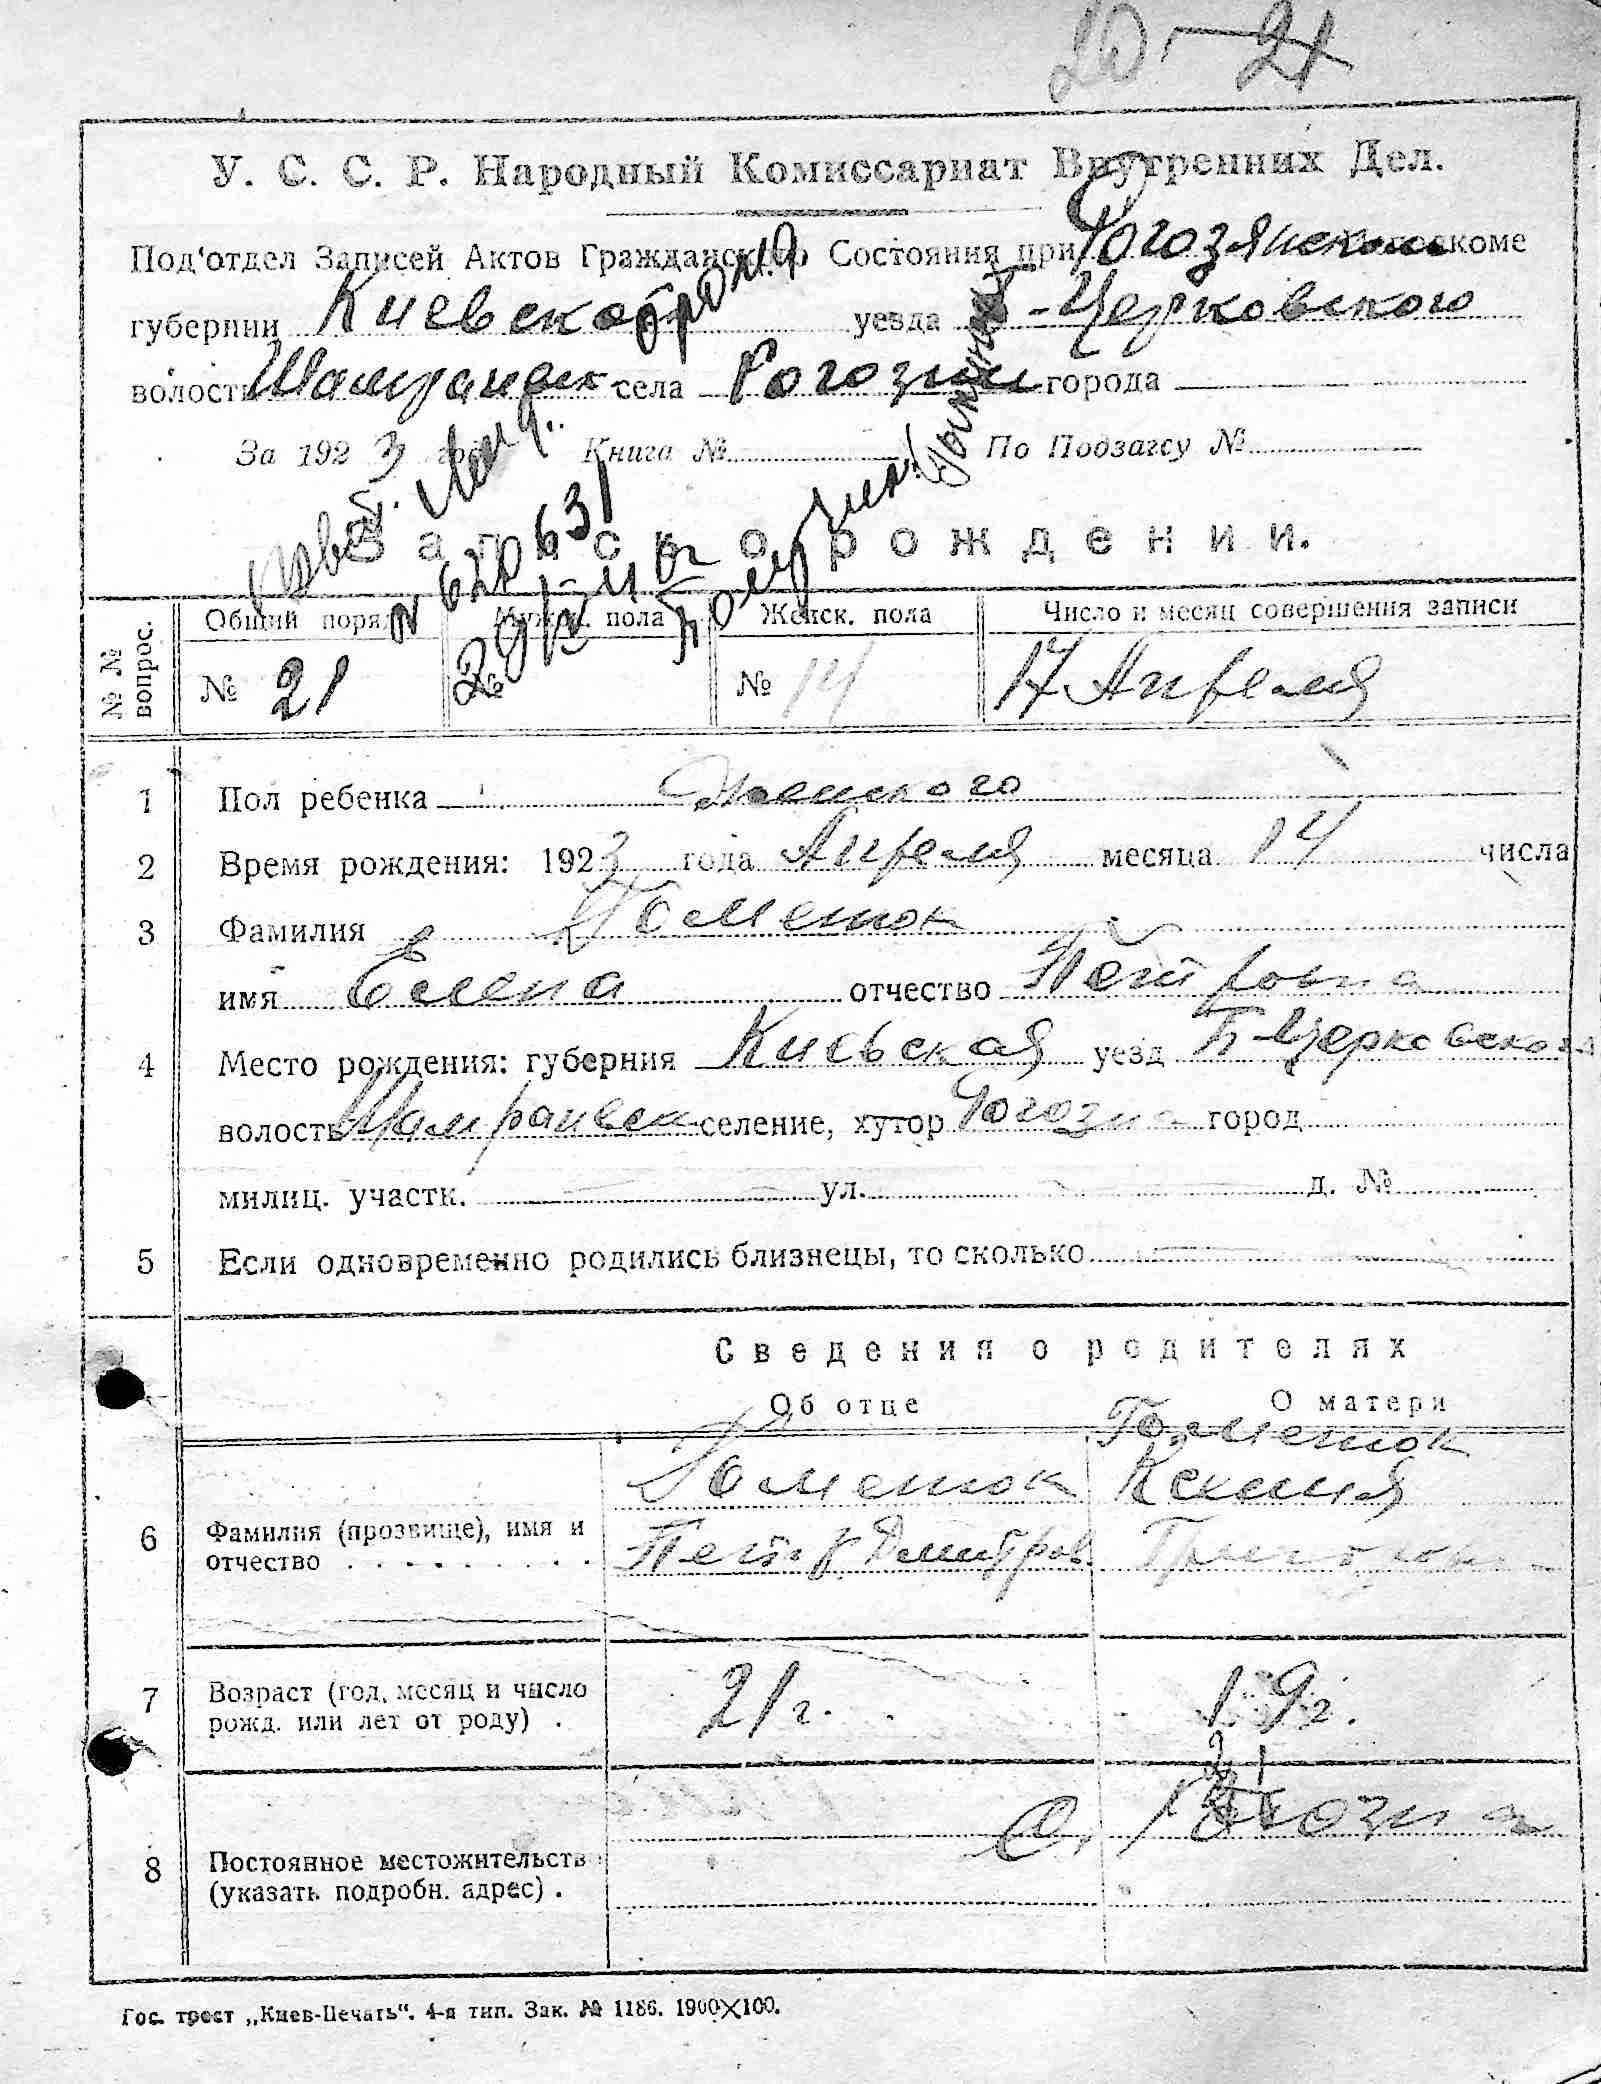 20-21
У. С. С. Р. Народный Комиссариат Внутренних Дел.
Под'отдел Записей Актов Гражданского Состояния при Рогозянском
губернии Киевской уезда Б-Церковского
волость села Рогозни города
За 1923 год Книга № По Подзагсу №
Запись о рождении.
№ № вопрос. Общий поряд. Мужск. пола Женск. пола Число и месяц совершения записи
№ 21 № № 14 17 Апреля
1 Пол ребенка Женского
2 Время рождения: 1923 года Апреля месяца 14 числа
3 Фамилия Гоменюк
имя Елена отчество Петровна
4 Место рождения: губерния Киевская уезд Б-Церковского
волость селение, хутор Рогозна город
милиц. участк. ул. д. №
5 Если одновременно родились близнецы, то сколько
Сведения о родителях
Об отце О матери
Гоменюк Гоменюк
Ксения
6 Фамилия (прозвище), имя и отчество Петр Дмитров.
7 Возраст (год, месяц и число рожд. или лет от роду) . 21 г. 19 г.
21
8 Постоянное местожительств (указать подробн. адрес) . с. Рогозна
Гос. трест „Киев-Печать“. 4-я тип. Зак. № 1186. 1900×100.